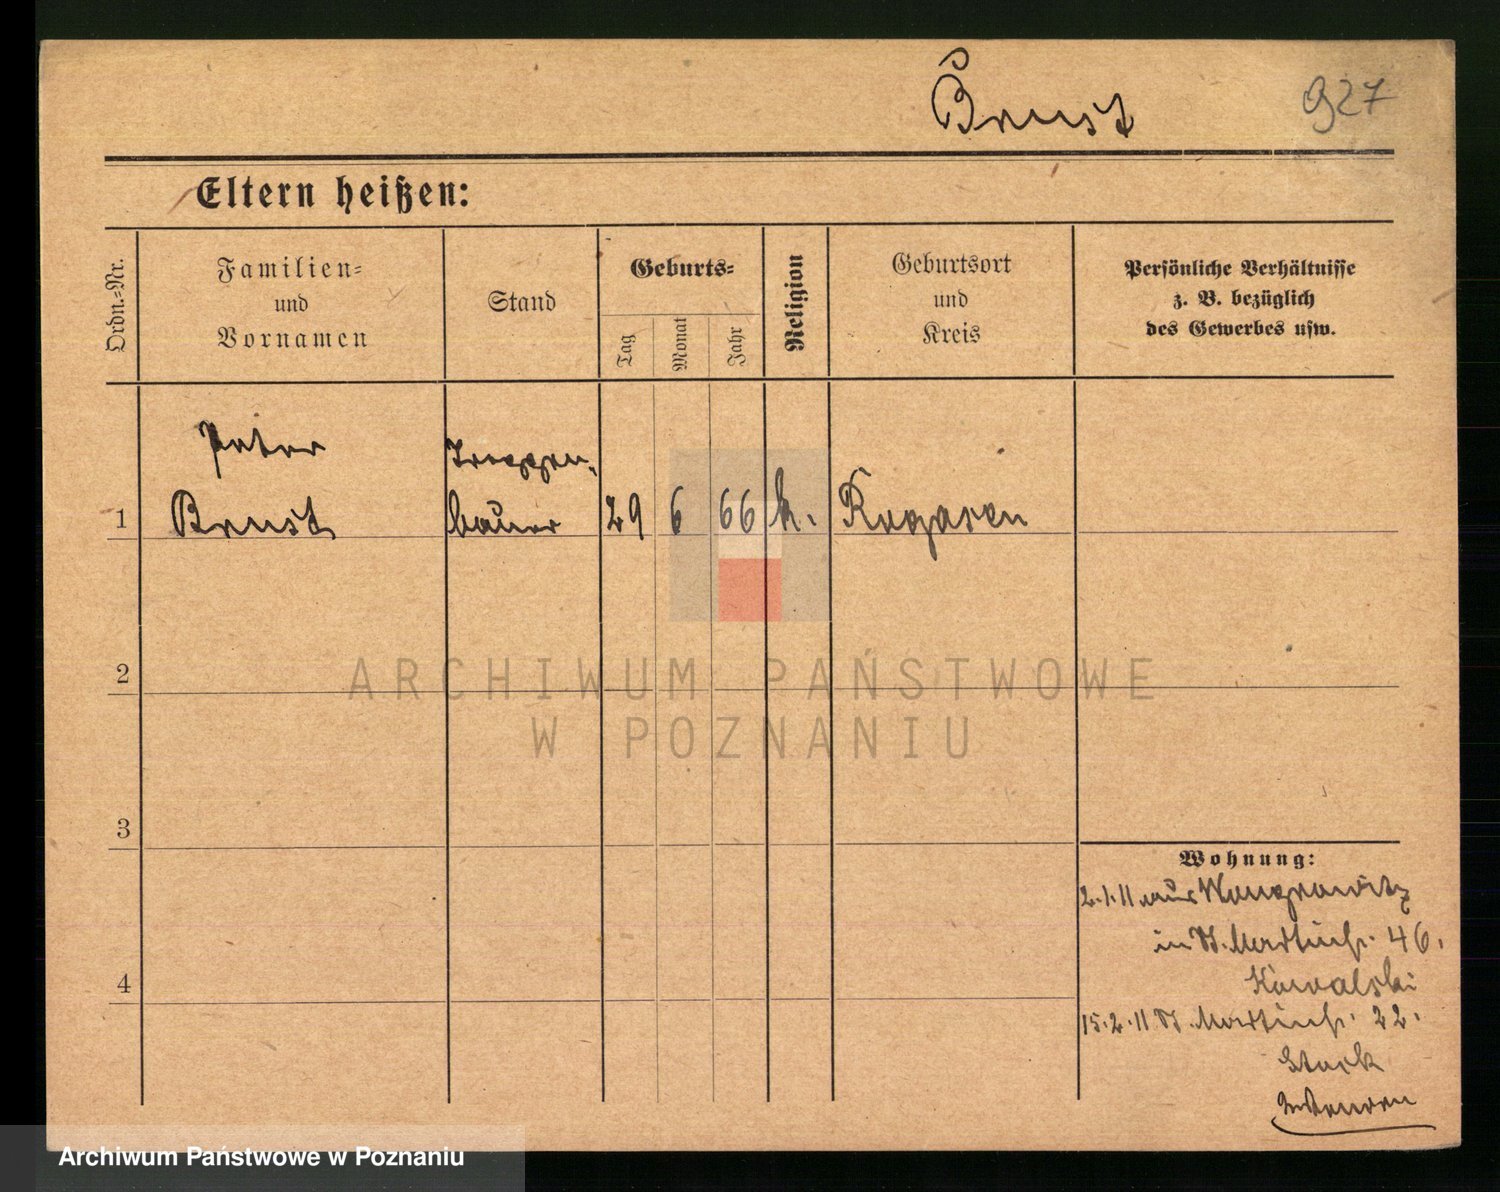 Brust
927
Eltern heißen:
Ordn.-Nr.
Familien-
und
Vornamen
Stand
Geburts-
Tag
Monat
Jahr
Religion
Geburtsort
und
Kreis
Persönliche Verhältnisse
z. B. bezüglich
des Gewerbes usw.
Peter
Treppen-
1 Brust bauer 29 6 66 k. Rogasen
2
3
4
Wohnung:
2.1.11 aus Wongrowitz
in St. Martinstr. 46.
Kowalski
15.2.11 St. Martinstr. 22.
Stark
ARCHIWUM PAŃSTWOWE
W POZNANIU
Archiwum Państwowe w Poznaniu